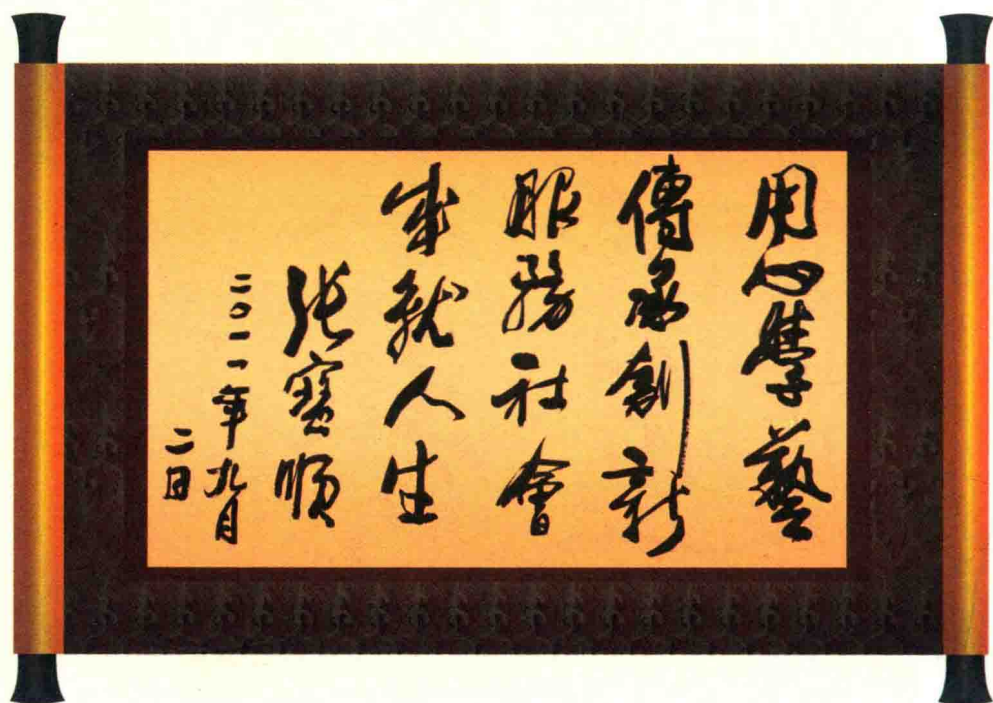 用心學藝
傳承創新
服務社會
成就人生
張寶順
二〇一一年九月
二日